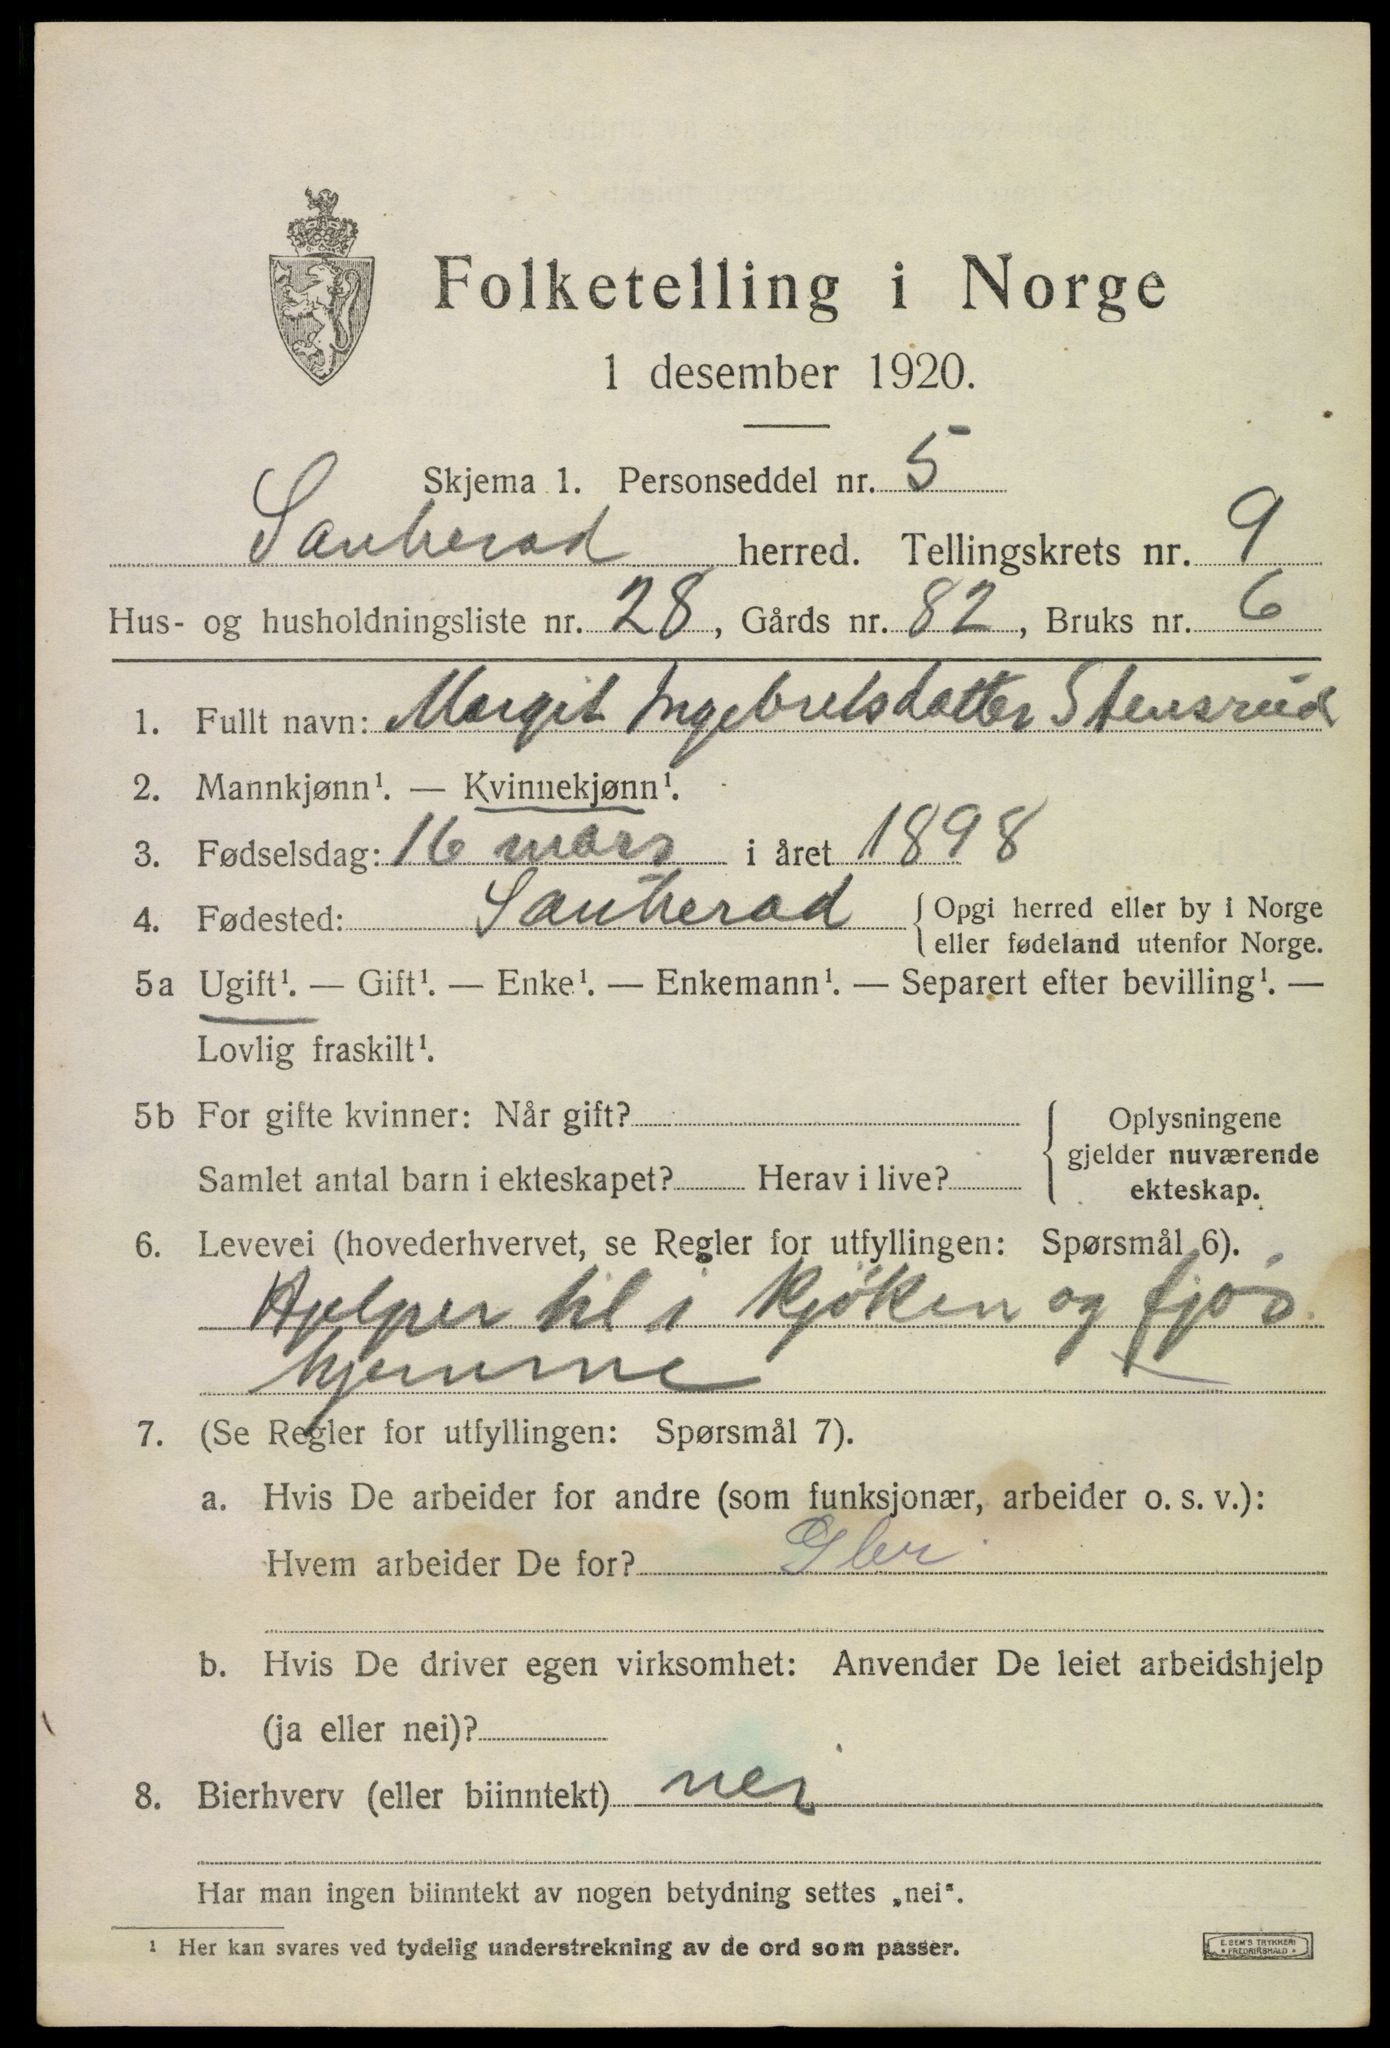 Folketelling i Norge
1 desember 1920.
Skjema 1. Personseddel nr. 5
Sauherad herred. Tellingskrets nr. 9
Hus- og husholdningsliste nr. 28, Gårds nr. 82, Bruks nr. 6
1. Fullt navn: Margit Ingebretsdatter Stensrud
2. Mannkjønn¹. — Kvinnekjønn¹.
3. Fødselsdag: 16 mars i året 1898
4. Fødested: Sauherad { Opgi herred eller by i Norge
eller fødeland utenfor Norge.
5a Ugift¹. — Gift¹. — Enke¹. — Enkemann¹. — Separert efter bevilling¹. —
Lovlig fraskilt¹.
5b For gifte kvinner: Når gift?
Samlet antal barn i ekteskapet? Herav i live?
{ Oplysningene
gjelder nuværende
ekteskap.
6. Levevei (hovederhvervet, se Regler for utfyllingen: Spørsmål 6).
Hjelper til i kjøken og fjøs
hjemme
7. (Se Regler for utfyllingen: Spørsmål 7).
a. Hvis De arbeider for andre (som funksjonær, arbeider o. s. v.):
Hvem arbeider De for?
b. Hvis De driver egen virksomhet: Anvender De leiet arbeidshjelp
(ja eller nei)?
8. Bierhverv (eller biinntekt) nei
Har man ingen biinntekt av nogen betydning settes „nei“.
¹ Her kan svares ved tydelig understrekning av de ord som passer.
E. SEM'S TRYKKERI
FREDRIKSHALD